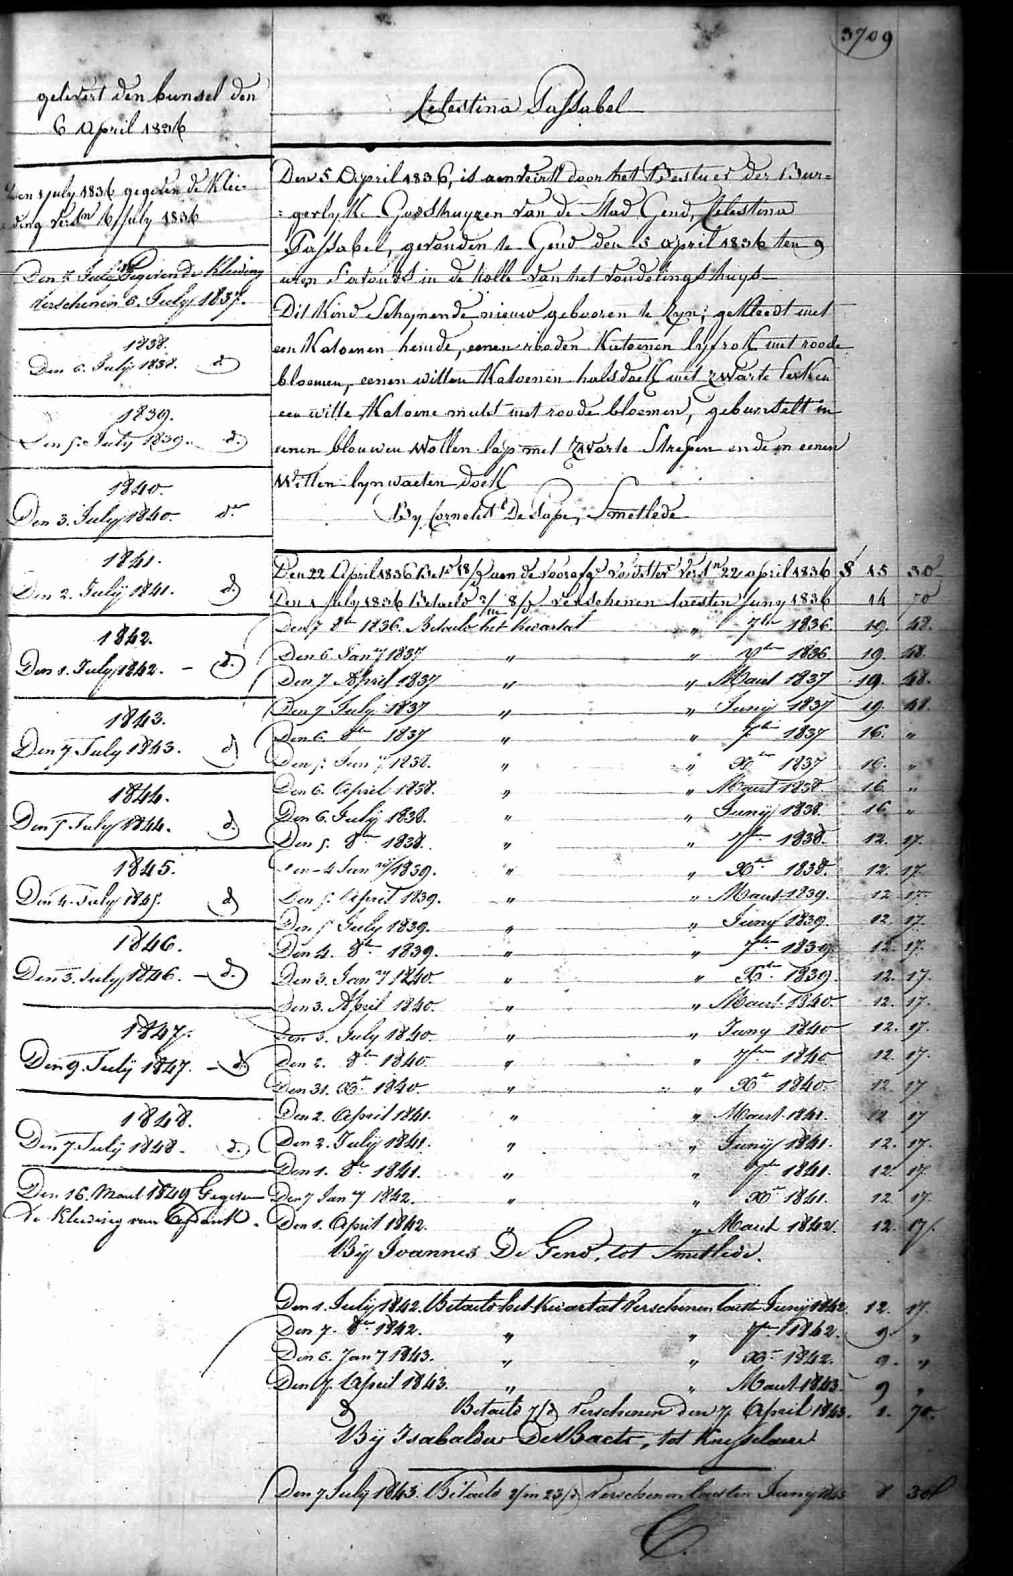 3709
gelevert den bunsel den
6 April 1836
Den 1 July 1836 gegeven de Klee-
ding versn 6 July 1836
Den 7 July gegeven de Kleeding
Verschenen 6. July 1837.
1838.
Den 6. July 1838. d
1839.
Den 5. July 1839. d.
1840.
Den 3. July 1840. do
1841.
Den 2. July 1841. d
1842.
Den 1. July 1842. - d.
1843.
Den 7 July 1843. d
1844.
Den 5 July 1844. d.
1845.
Den 4. July 1845. d
1846.
Den 3. July 1846. - d.
1847.
Den 9. July 1847. - d.
1848.
Den 7. July 1848. - d.
Den 16. Maart 1849 Gegeven
de Kleeding van
Celestina Passabel
Den 5 April 1836, is aenveird door het Bestuer der Bur-
:gerlyke Godshuyzen van de Stad Gend, Celestina
Passabel, gevonden te Gend den 5 April 1836 ten 9
uren s'avonds in de Rolle van het vondelingshuys
Dit Kind Schynende nieuw gebooren te zyn; gekleedt met
een Katoenen hemde, eenen rooden Katoenen lyfrok met roode
bloemen, eenen witten Katoenen halsdoek met zwarte
een witte Katoene muts met roode bloemen, gebunselt in
eenen blouwen Wollen lap met zwarte Strepen ende in eenen
Witten lynwaeten doek
By Cornelis De Pape, Smetlede
Den 22 April 1836 Bet 18/d aen de voorafge voedster versn 22 april 1836 § 15 30
Den 1 July 1836 Betaeld 2/m 8/d verschenen laesten Juny 1836 14 70
Den 7 8ber 1836. Betaeld het Kwartael " 7ber 1836 19. 48.
Den 6 Jany 1837 " " Xber 1836 19. 48.
Den 7 April 1837 " " Maert 1837 19. 48.
Den 7 July 1837 " " Juny 1837 19. 48.
Den 6. 8ber 1837 " " 7ber 1837 16. "
Den 5 Jany 1838. " " Xber 1837 16. "
Den 6. April 1838. " " Maert 1838 16 "
Den 6. July 1838. " " Juny 1838. 16 "
Den 5. 8ber 1838. " " 7ber 1838. 12. 17.
Den 4 Jany 1839. " " Xber 1838. 12. 17.
Den 5. April 1839. " " Maert 1839. 12 17.
Den 5 July 1839. " " Juny 1839. 12. 17.
Den 4. 8ber 1839. " " 7ber 1839 12. 17.
Den 3. Jany 1840. " " Xber 1839. 12. 17.
Den 3. April 1840. " " Maert 1840 12. 17.
Den 3. July 1840. " " Juny 1840 12. 17.
Den 2. 8ber 1840. " " 7ber 1840 12. 17.
Den 31. Xber 1840. " " Xber 1840. 12. 17
Den 2. April 1841. " " Maert 1841. 12 17
Den 2. July 1841. " " Juny 1841. 12. 17.
Den 1. 8ber 1841. " " 7ber 1841. 12 17.
Den 7 Jany 1842. " " Xber 1841. 12. 17.
Den 1. April 1842. " " Maert 1842. 12. 17.
Bij Joannes De Gend, tot Smetlede.
Den 1. July 1842. Betaeld het Kwartael verschenen laeste Juny 1842 12. 17.
Den 7. 8ber 1842. " " 7ber 1842. 9. "
Den 6. Jany 1843. " " Xber 1842. 9. "
Den 7. April 1843. " " Maert 1843 9 "
d Betaeld 7/d Verschenen den 7 April 1843. 1. 70.
Bij Isabella De Baets, tot
Den 7 July 1843. Betaeld 2/m 23/d verschenen laesten Juny 1843 8 30